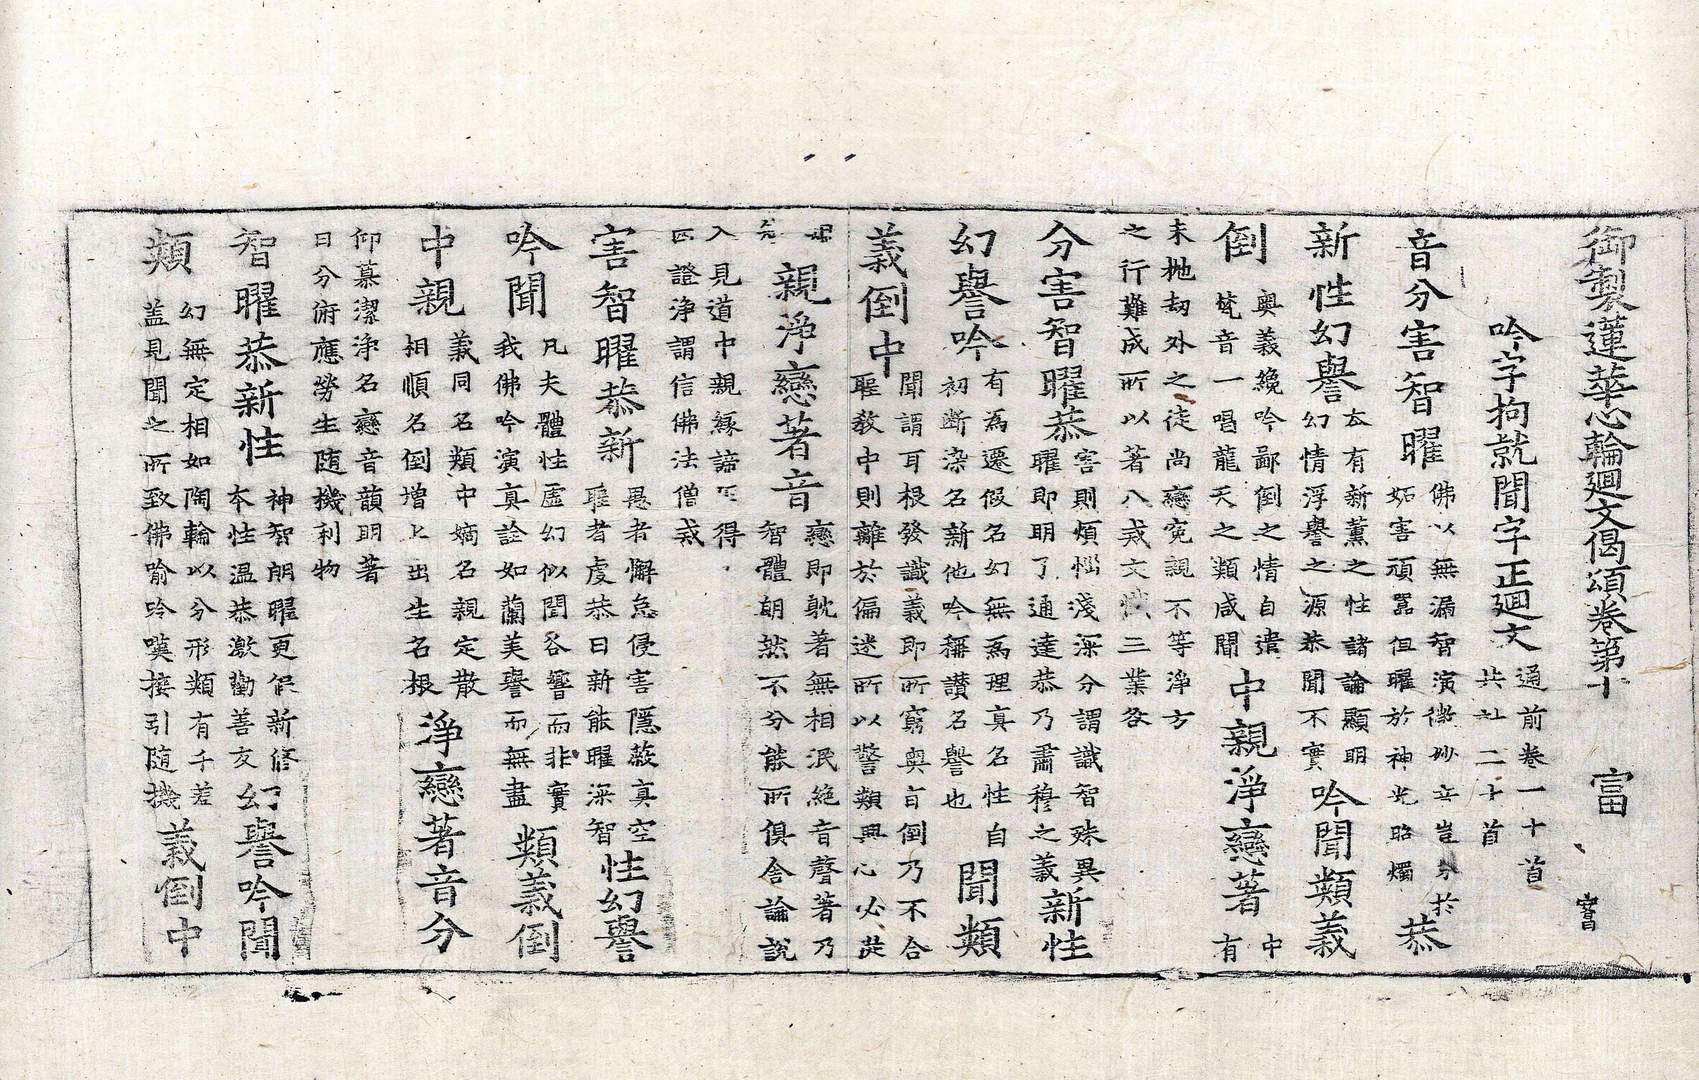 御製蓮華心輪廻文偈頌卷第十 富
吟字拘就聞字正廻文
通前卷一十首
共計二十首
音分害智曜
佛以無漏智演微妙音豈分於
妬害頑嚚但曜於神光昭燭
恭
新性幻譽
本有新薰之性諸論顯明
幻情浮譽之源恭聞不實
吟聞類義
倒
奧義纔吟鄙倒之情自遣
梵音一唱龍天之類咸聞
中親淨戀著
中
有
未拋劫外之徒尚戀寃親不等淨方
之行難成所以著八戒文懺三業咎
分害智曜恭
害則煩惱淺深分謂識智殊異
曜即明了通達恭乃肅穆之義
新性
幻譽吟
有為遷假名幻無為理真名性自
初斷染名新他吟稱讚名譽也
聞類
義倒中
聞謂耳根發識義即所窮奧旨倒乃不合
聖教中則離於偏迷所以警類興心必從
親淨戀著音
戀即躭著無相泯絕音聲著乃
智體朗然不分能所俱含論說
入見道中親緣諦 得
四證淨謂信佛法僧戒
害智曜恭新
愚者懈怠侵害隱蔽真空
聖者虔恭日新能曜深智
性幻譽
吟聞
凡夫體性虛幻似 谷響而非實
我佛吟演真詮如蘭美譽而無盡
類義倒
中親
義同名類中嫡名親定散
相順名倒增上出生名根
淨戀著音分
仰慕潔淨名戀音韻明著
日分俯應勞生隨機利物
智曜恭新性
神智朗曜更促新修
本性温恭激勸善友
幻譽吟聞
類
幻無定相如陶輪以分形類有千差
蓋見聞之所致佛喻吟嘆接引隨機
義倒中